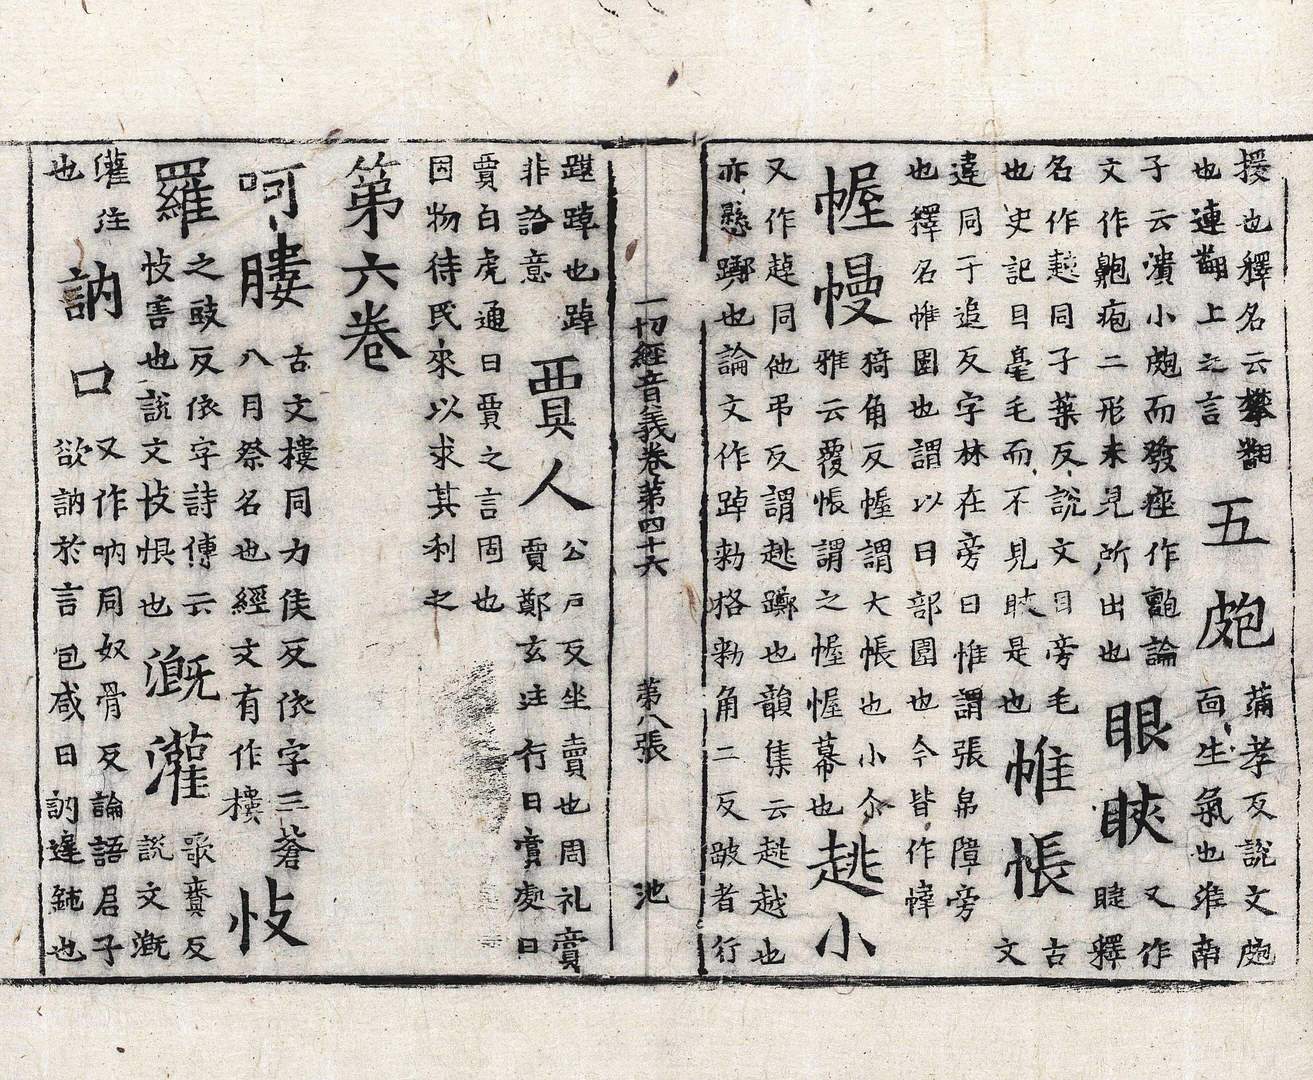 援也釋名云攀翻
也連翻上之言
五皰
蒲孝反說文皰
面生氣也淮南
子云潰小皰而發痤作皰論
文作皰疱二形未見所出也
眼䀹
又作
睫釋
名作同子葉反說文目旁毛
也史記曰毫毛而不見䀹是也
帷帳
古
文
違同于追反字林在旁曰帷謂張帛障旁
也釋名帷圍也謂以自部圍也今皆作幃
幄幔
猗角反幄謂大帳也小尒
雅云覆帳謂之幄幄幕也
趒小
又作趠同他弔反謂趒躑也韻集云趒越也
亦懸躑也論文作踔勑格勑角二反跛者行
一切經音義卷第四十六 第八張 池
踸踔也踔
非論意
賈人
公戶反坐賣也周礼賣
賈鄭玄注行曰賣處曰
賈白虎通曰賈之言固也
固物待民來以求其利之
第六卷
呵膢
古文樓同力侯反依字三蒼
八月祭名也經文有作樓
忮
羅
之豉反依字詩傳云
忮害也說文忮惧也
溉灌
歌賚反
說文溉
灌注
也
訥口
又作吶同奴骨反論語君子
欲訥於言包咸曰訥遲鈍也